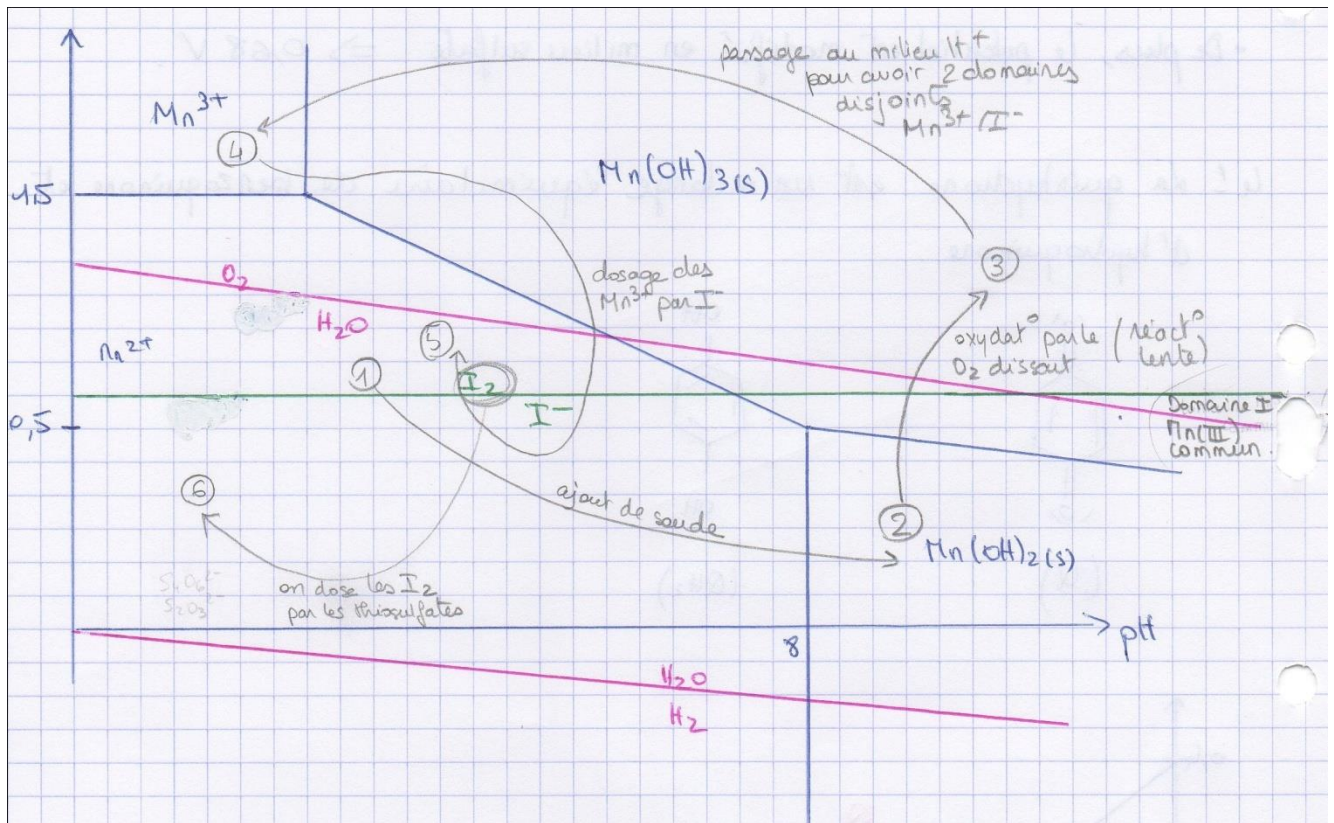 passage au milieu H+
pour avoir 2 domaines
disjoints
Mn3+/I-
Mn3+
4
1,5
Mn(OH)3(s)
3
dosage des
Mn3+ par I-
O2
H2O
oxydat° par le
O2 dissout
(réact°
lente)
Mn2+
5
1
I2
I-
0,5
Domaine I-
Mn(III)
commun.
6
ajout de soude
2
Mn(OH)2(s)
S4O62-
S2O32-
on dose les I2
par les thiosulfates
pH
8
H2O
H2